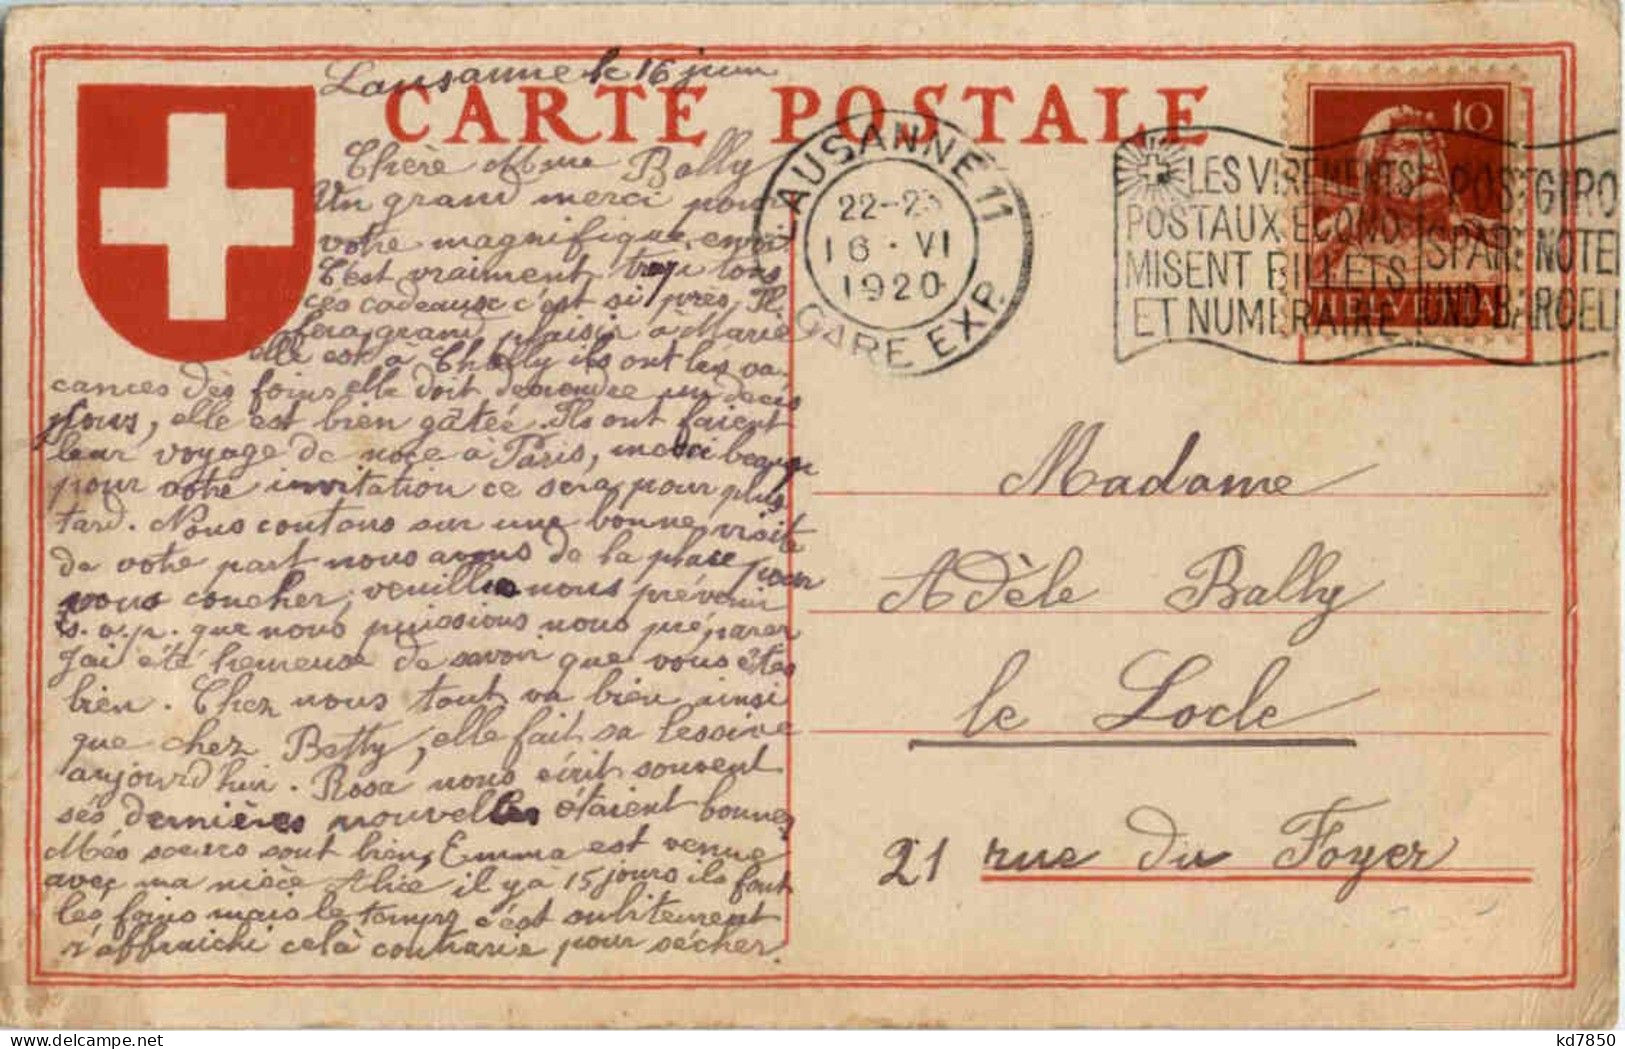 Lausanne le 16 juin
CARTE POSTALE
Chère Mme Bally
Un grand merci pour
votre magnifique envoi
C'est vraiment trop tous
ces cadeaux c'est si près, Il
fera grand plaisir à Marie
elle est à Chailly ils ont les va
cances dès foins elle doit descendre un de ces
jours, elle est bien gâtée. Ils ont faient
leur voyage de noce à Paris, merci beaucoup
pour votre invitation ce sera pour plus
tard. Nous contons sur une bonne visite
de votre part nous avons de la place pour
vous coucher, veuillez nous prévenir
s.v.p. que nous puissions nous préparer
J'ai été heureuse de savoir que vous êtes
bien. Chez nous tout va bien ainsi
que chez Betty, elle fait sa lessive
aujourd'hui. Rosa nous écrit souvent
sés dernières nouvelles étaient bonnes
Més soeurs sont bien, Emma est venue
avec ma nièce Alice il y a 15 jours ils font
lés foins mais le temps c'est subitement
r'affraichi celà contrarie pour sécher.
LAUSANNE 11
22-23
16·VI
1920
GARE EXP.
LES VIREMENTS
POSTAUX ECONO
MISENT BILLETS
ET NUMERAIRE
POSTGIRO
SPART NOTEN
UND BARGELD
10
HELVETIA
Madame
Adèle Bally
le Locle
21 rue du Foyer
kd7850